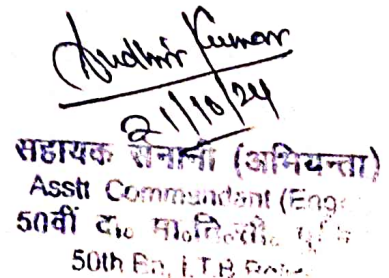 Sudhir Kumar
21/10/24
सहायक सेनानी (अभियन्ता)
Asstt Commandant (Eng
50वीं वा० भा०ति०सी०
50th Bn, I.T.B.